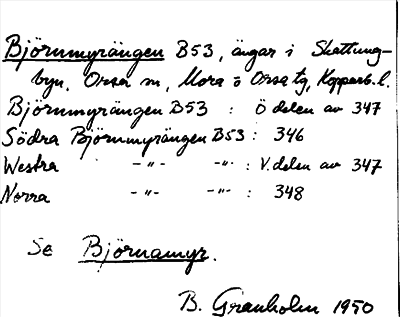 Björnmyrängen B53, ängar i Skattung-
byn. Orsa sn, Mora o Orsa tg, Kopparb. l.
Björnmyrängen B53 : Ö delen av 347
Södra Björnmyrängen B53 : 346
Westra -"- -"- : V. delen av 347
Norra -"- -"- : 348
Se Björnamyr.
B. Granholm 1950